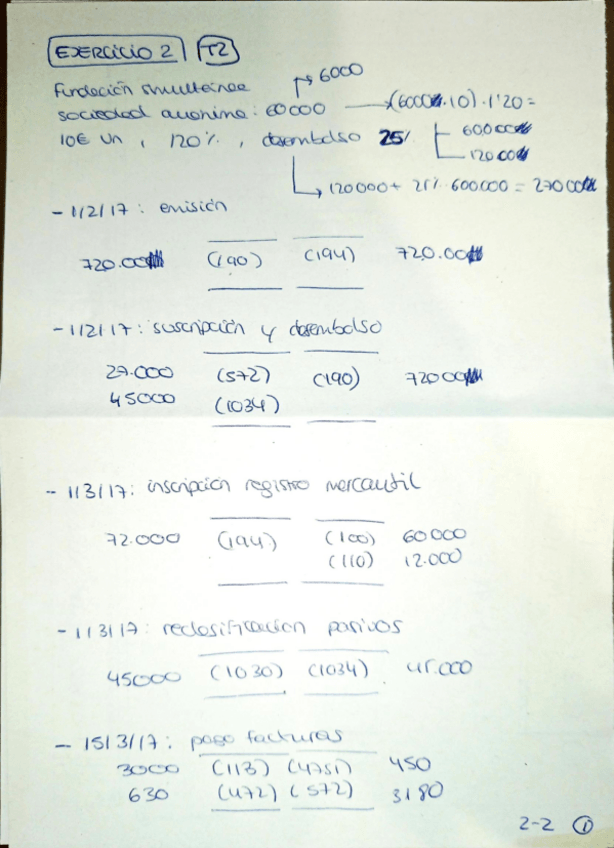 EJERCICIO 2 T2
Fundación simultánea → 6000
sociedad anónima: 60000 → (6000.10).1'20 =
10€ un, 120%, desembolso 25% 60000
12000
→ 12000 + 25% 60000 = 27000
- 1/2/17: emisión
720.00 (190) (194) 720.00
- 1/2/17: suscripción y desembolso
27.000 (572) (190) 72000
45000 (1034)
- 1/3/17: inscripción registro mercantil
72.000 (194) (100) 60000
(110) 12.000
- 1/3/17: reclasificación pasivos
45000 (1030) (1034) 45.000
- 15/3/17: pago facturas
3000 (113) (4751) 450
630 (472) (572) 3180
2-2 1